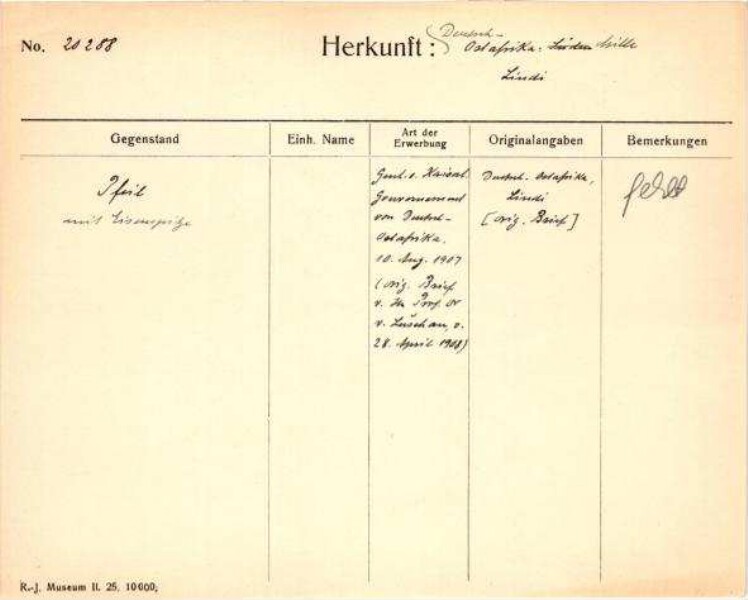 No. 20288
Herkunft: Deutsch-
Ostafrika. Süden Mitte
Lindi
Gegenstand
Einh. Name
Art der
Erwerbung
Originalangaben
Bemerkungen
Pfeil
mit Eisenspitze
Gesch. v. Kaiserl.
Gouvernement
von Deutsch-
Ostafrika.
10. Aug. 1907
(orig. Brief
v. H. Prof. Dr
v. Luschan, v.
28. April 1908)
Deutsch. Ostafrika,
Lindi
[orig. Brief]
fehlt
R.-J. Museum II. 25. 10000;